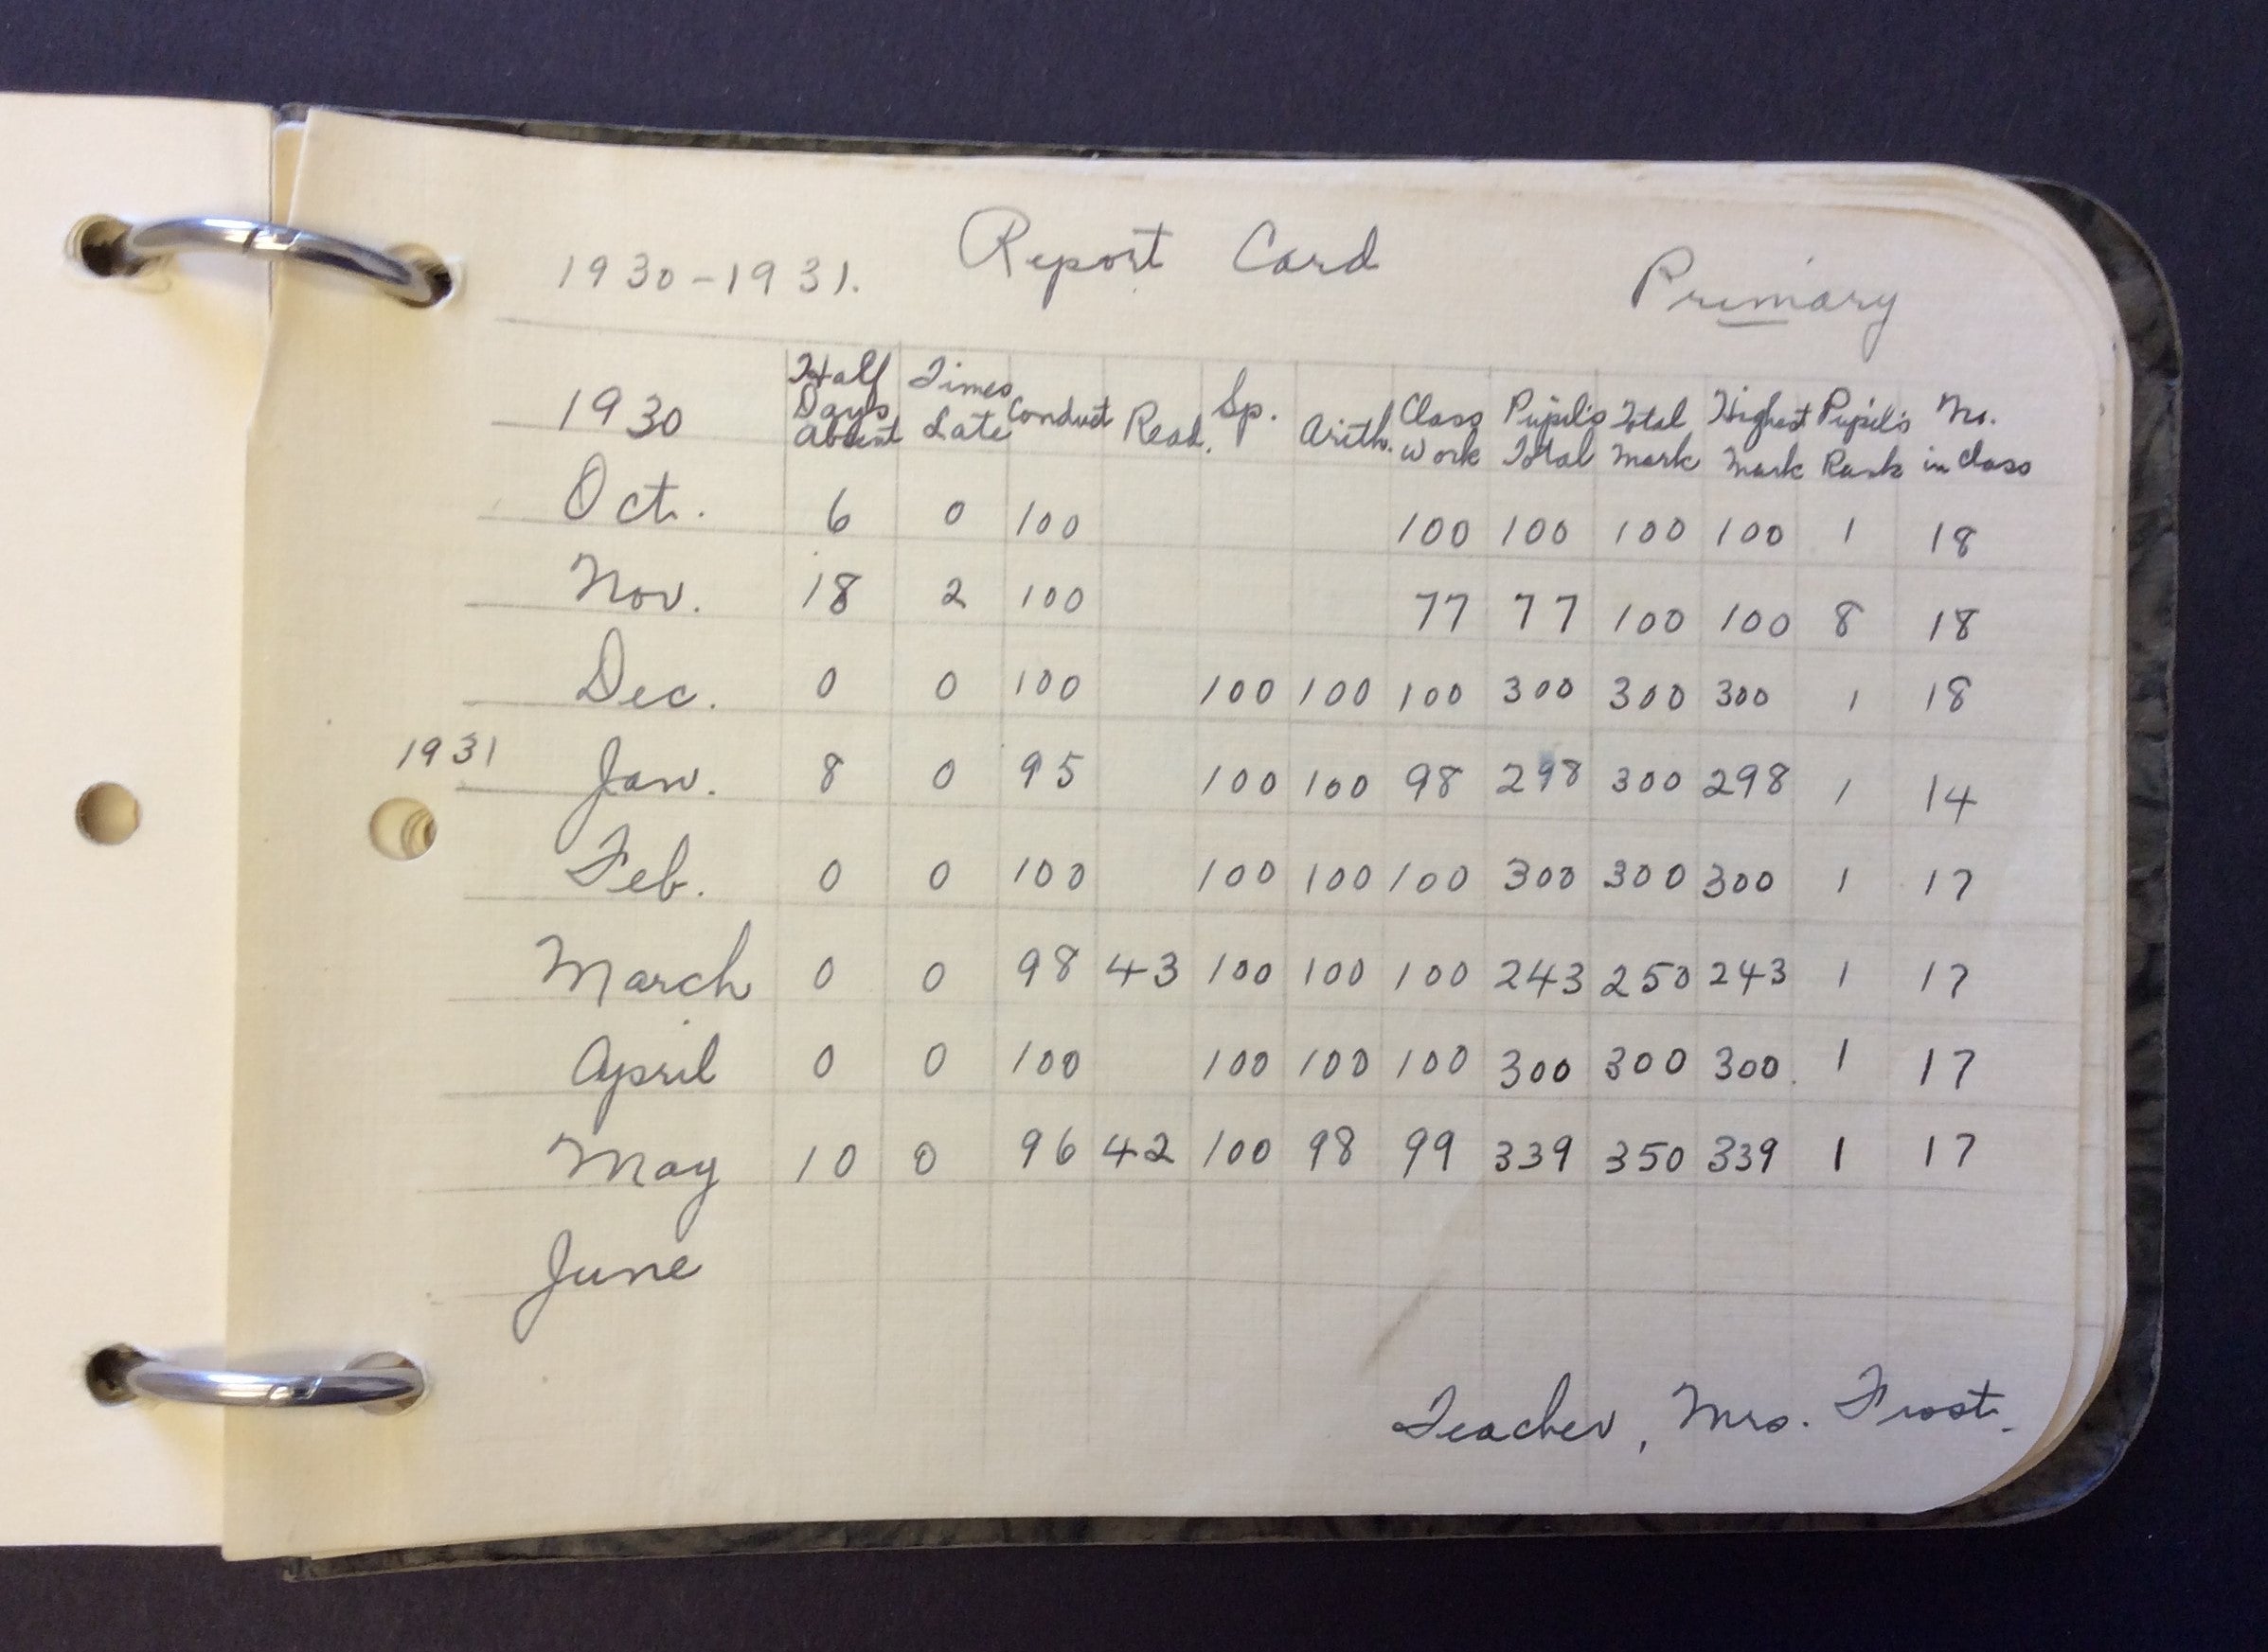 1930-1931. Report Card Primary
1930 Half Days Absent Times Late Conduct Read. Sp. Arith. Class Work Pupil's Total Total Mark Highest Mark Pupil's Rank No. in Class
Oct. 6 0 100 100 100 100 100 1 18
Nov. 18 2 100 77 77 100 100 8 18
Dec. 0 0 100 100 100 100 300 300 300 1 18
1931 Jan. 8 0 95 100 100 98 298 300 298 1 14
Feb. 0 0 100 100 100 100 300 300 300 1 17
March 0 0 98 43 100 100 100 243 250 243 1 17
April 0 0 100 100 100 100 300 300 300 1 17
May 10 0 96 42 100 98 99 339 350 339 1 17
June
Teacher, Mrs. Frost.